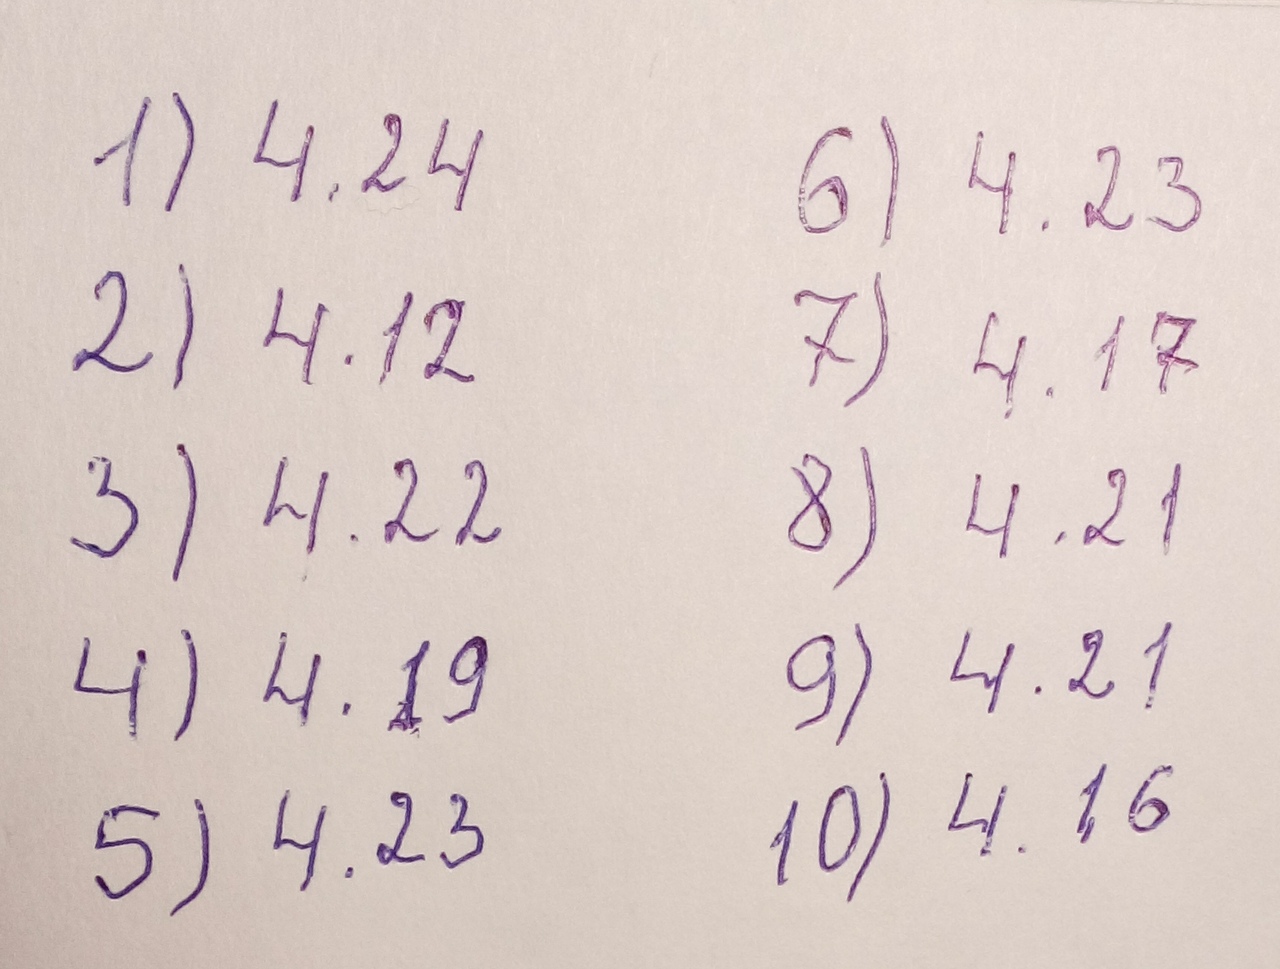 1) 4.24
2) 4.12
3) 4.22
4) 4.19
5) 4.23
6) 4.23
7) 4.17
8) 4.21
9) 4.21
10) 4.16